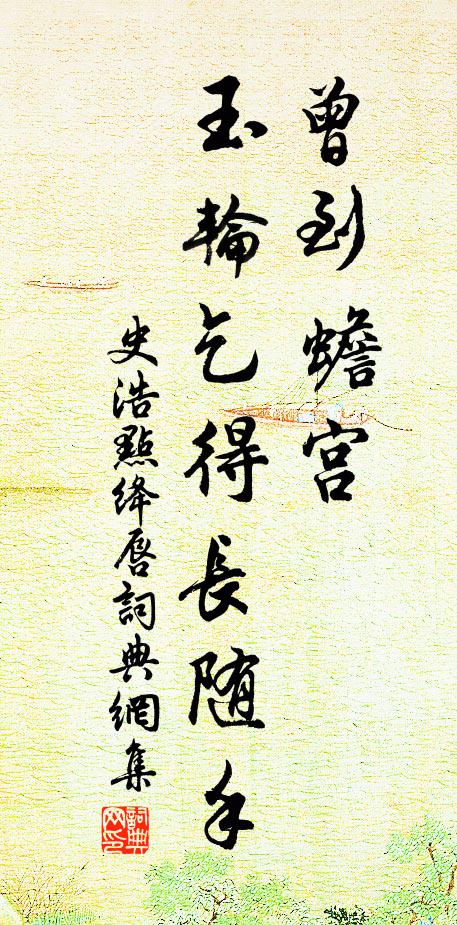 曾到蟾宮
玉輪乞得長随手
史浩點绛唇詞典網集
詞典网印